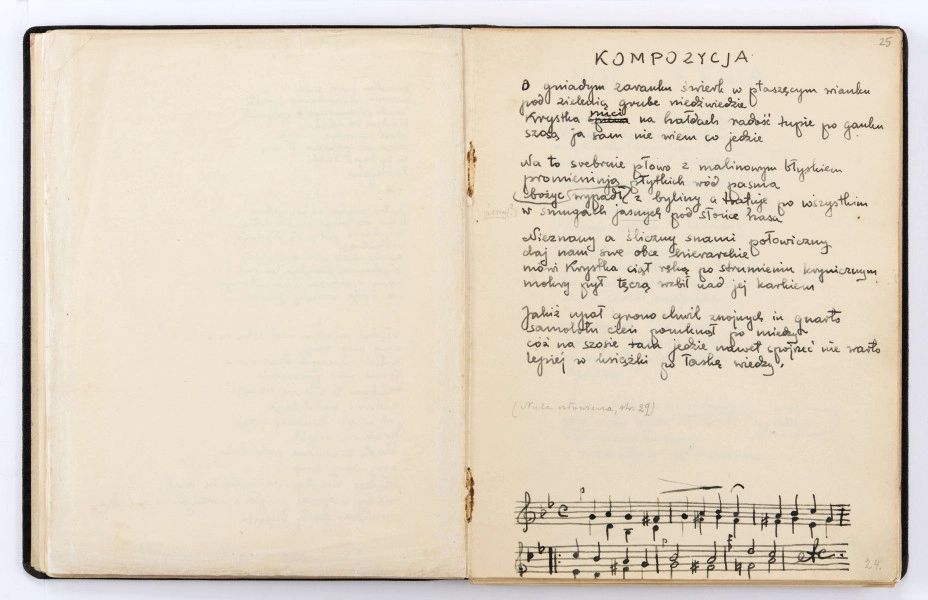 25
KOMPOZYCJA
O gniadym zaranku świerk w płaszącym wianku
pod zielenią grube niedźwiedzie
Krystka nuci na hałdach radość tupie po ganku
szosą ja sam nie wiem co jedzie
Na to srebrnie płowo z malinowym błyskiem
promieniują płytkich wód pasma
bożyc wypadł z byliny a tratuje po wszystkim
w smugach jasnych pod słońce hasa
Nieznany a śliczny snami połowiczny
daj nam swe obce hierarchie
mówi Krystka ciął ręką po strumieniu krynicznym
mokry pył tęczą wzbił nad jej karkiem
Jakiż upał grono chwil znojnych in quarto
samolotu cień pomknął po miedzy
cóż na szosie tam jedzie nawet spojrzeć nie warto
lepiej w książki po łaskę wiedzy.
str. 29]
C
etc..
24.